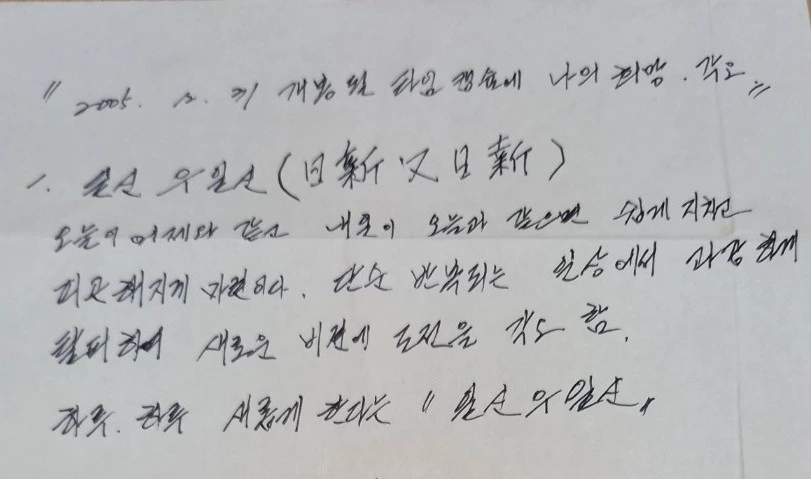 "2005. 12. 31 개봉될 타임 캡슐에 나의 희망. 각오"
1. 일신 우일신(日新 又 日新)
오늘이 어제와 같고 내일이 오늘과 같으면 쉽게 지치고
피곤해지게 마련이다. 단순 반복되는 일상에서 과감하게
탈피하여 새로운 비전에 도전을 각오 함.
하루. 하루 새롭게 한다는 "일신우일신"